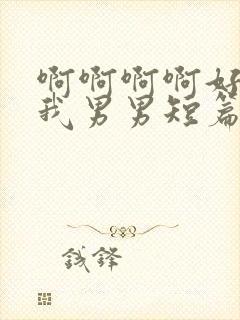 啊啊啊啊好
我男男短篇
钱锋